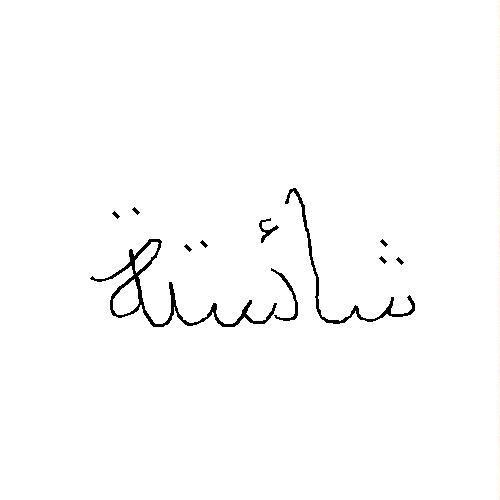 شائستة